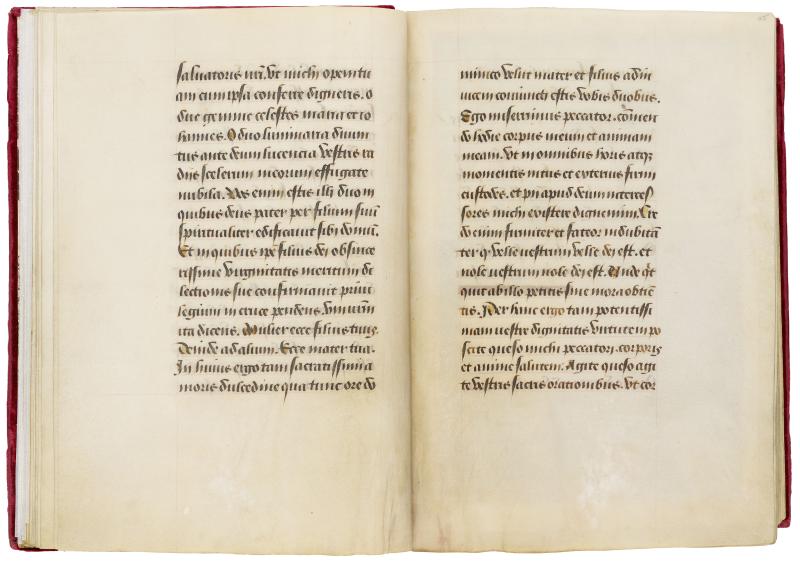 saluatoris nrī. vt michi opem tu
am cum ipsa conferre digneris. O
due gemme celestes maria et io
hannes. O duo luminaria diuini
tus ante deum lucencia vestris ra
dijs scelerum meorum effugate
nubila. Vos enim estis illi duo in
quibus deus pater per filium suū
spiritualiter edificauit sibi domū.
Et in quibus ipē filius dei ob since
rissime virginitatis meritum di
lectionis sue confirmauit priui
legium in cruce pendens. vni vrm̄
ita dicens. Mulier ecce filius tuus.
Deinde ad alium. Ecce mater tua.
In huius ergo tam sacratissimi a
moris dulcedine qua tunc ore do
minico velut mater et filius ad in
uicem coniuncti estis vobis duobus.
Ego miserrimus peccator. cōmen
do hodie corpus meum et animam
meam. vt in omnibus horis atqȝ
momentis intus et exterius firmi
custodes. et pii apud deum interces
sores michi existere dignemini. Cre
do enim firmiter et fateor indubitā
ter q̄ velle uestrum velle dei est. et
nolle uestrum nole dei est. Unde q̄c
quit ab illo petitis sine mora obtiē
tis. Per hanc ergo tam potentissi
mam uestre dignitatis virtutem po
scite queso michi peccatori. corporis
et anime salutem. Agite queso agi
te vestris sacris orationibus. vt cor